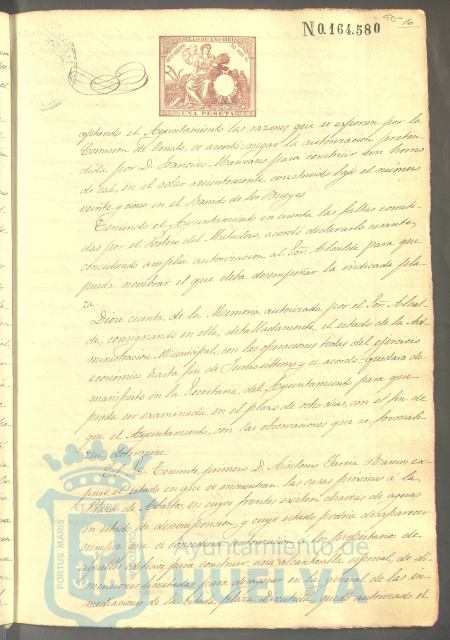 50- 10
N 0.164.580
SELLO DE
UNA PESETA
aptando el Ayuntamiento las razones que se exponen por la
Comision de Ornato, se acordó: negar la autorizacion preten-
dida por D. Francisco para construir un horno
de cal, en el solar recientemente construido bajo el número
veinte y cinco en el Barrio de los
Teniendo el Ayuntamiento en cuenta las faltas cometi-
das por el Portero del Matadero, acordó declararlo cesante,
concediendo amplia autorizacion al Sor. Alcalde para que
pueda nombrar el que deba desempeñar la indicada pla-
za.
Diose cuenta de la Memoria autorizada por el Sor. Alcal-
de, consignando en ella, detalladamente, el estado de la Ad-
ministracion Municipal, con las operaciones todas del ejercicio
economico hasta fin de Junio último y se acordó: quedara de
manifiesto en la Secretaria del Ayuntamiento para que
pueda ser examinada en el plazo de ocho dias, con el fin de
que el Ayuntamiento, con las observaciones que se formali-
zen, determine.
El Sr. Teniente primero D. Antonio Garcia Ramos ex-
puso el estado en que se encuentran las casas proximas a la
Plaza de Abastos, en cuyos frentes existen charcas de aguas
en estado de descomposicion, y cuyo estado podria desaparecer
siempre que se concediera autorizacion a los propietarios de
aquellas casas para construir una alcantarilla especial, de di-
mensiones limitadas para desaguar en la general de las in-
mediaciones de la citada plaza. Discutido, quedó autorizado el
PORTUS MARIS
Ayuntamiento de
HUELVA